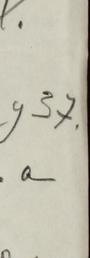 y 37.
. a